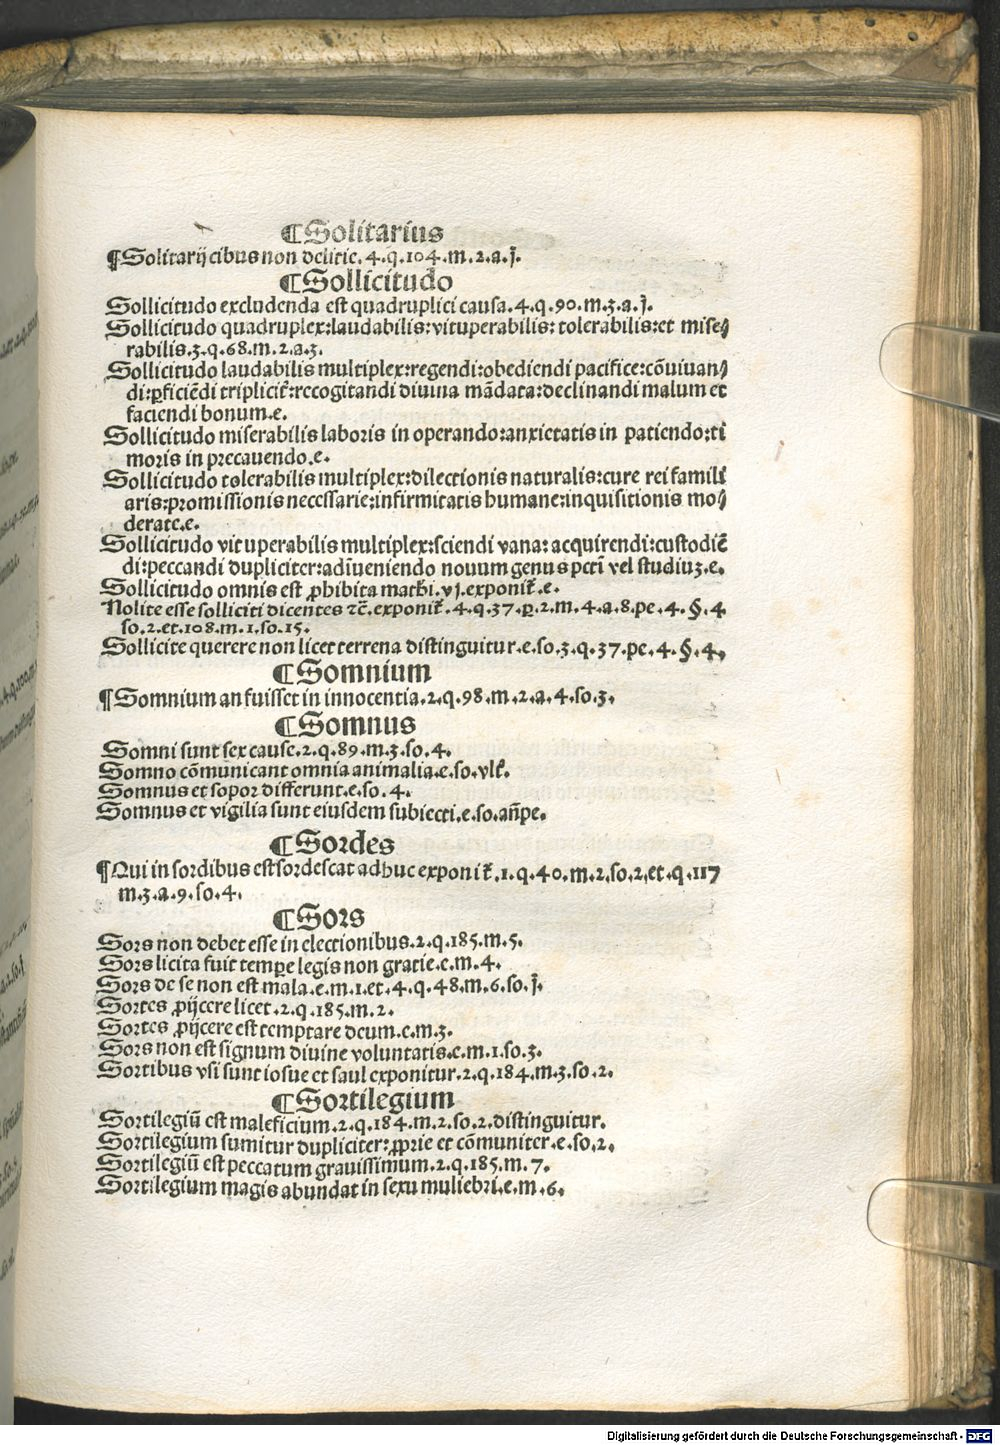 ¶Solitarius
¶Solitarij cibus non delitie.4.q.104.m.2.a.j.
¶Sollicitudo
Sollicitudo excludenda est quadruplici causa.4.q.90.m.3.a.j.
Sollicitudo quadruplex:laudabilis:vituperabilis:tolerabilis:et mise⸗
rabilis.3.q.68.m.2.a.3.
Sollicitudo laudabilis multiplex:regendi:obediendi pacifice:cõuiuan⸗
di:ꝑficiẽdi tripliciť:recogitandi diuina mãdata:declinandi malum et
faciendi bonum.e.
Sollicitudo miserabilis laboris in operando:anxietatis in patiendo:ti
moris in precauendo.e.
Sollicitudo tolerabilis multiplex:dilectionis naturalis:cure rei famili
aris:promissionis necessarie:infirmitatis humane:inquisitionis mo⸗
derate.e.
Sollicitudo vituperabilis multiplex:sciendi vana:acquirendi:custodiẽ
di:peccandi dupliciter:adĩueniendo nouum genus pctĩ vel studiuz.e.
Sollicitudo omnis est ꝓhibita math̃.vj.exponiť.e.
Nolite esse solliciti dicentes ⁊c̃.exponiť.4.q.37.ꝑ.2.m.4.a.8.pe.4.§.4.
so.2.et.108.m.1.so.15.
Sollicite querere non licet terrena distinguitur.e.so.3.q.37.pe.4.§.4.
¶Somnium
¶Somnium an fuisset in innocentia.2.q.98.m.2.a.4.so.3.
¶Somnus
Somni sunt sex cause.2.q.89.m.3.so.4.
Somno cõmunicant omnia animalia.e.so.vlť.
Somnus et sopor differunt.e.so.4.
Somnus et vigilia sunt eiusdem subiecti.e.so.añpe.
¶Sordes
¶Qui in sordibus est sordescat adhuc exponiť.1.q.40.m.2.so.2.et.q.117
m.3.a.9.so.4.
¶Sors
Sors non debet esse in electionibus.2.q.185.m.5.
Sors licita fuit tempe legis non gratie.e.m.4.
Sors de se non est mala.e.m.1.et.4.q.48.m.6.so.j.
Sortes ꝓijcere licet.2.q.185.m.2.
Sortes ꝓijcere est temptare deum.e.m.3.
Sors non est signum diuine voluntatis.e.m.1.so.3.
Sortibus vsi sunt iosue et saul exponitur.2.q.184.m.3.so.2.
¶Sortilegium
Sortilegiũ est maleficium.2.q.184.m.2.so.2.distinguitur.
Sortilegium sumitur dupliciter:ꝓprie et cõmuniter.e.so.2.
Sortilegiũ est peccatum grauissimum.2.q.185.m.7.
Sortilegium magis abundat in sexu muliebri.e.m.6.
Digitalisierung gefördert durch die Deutsche Forschungsgemeinschaft - DFG